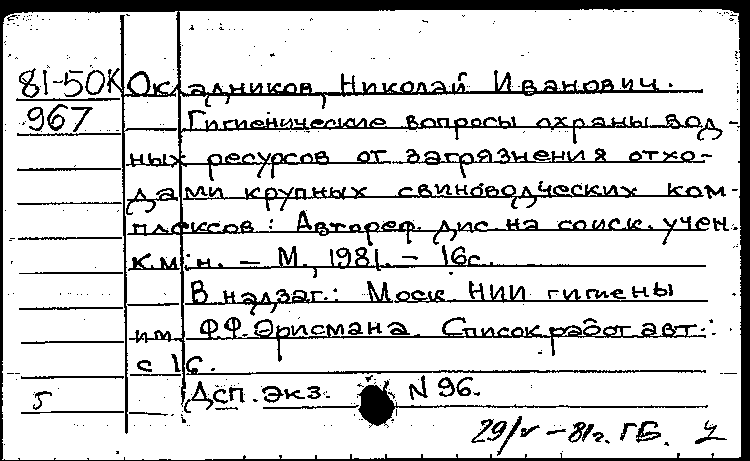 81-50К Окладников, Николай Иванович.
967 Гигиенические вопросы охраны вод-
ных ресурсов от загрязнения отхо-
дами крупных свиноводческих ком-
плексов: Автореф. дис. на соиск. учен.
к.м.н. – М., 1981. – 16с.
В надзаг.: Моск. НИИ гигиены
им. Ф.Ф. Эрисмана. Список работ авт.:
с 16.
5 Дсп. экз. N 96.
29/V – 81г. ГБ.